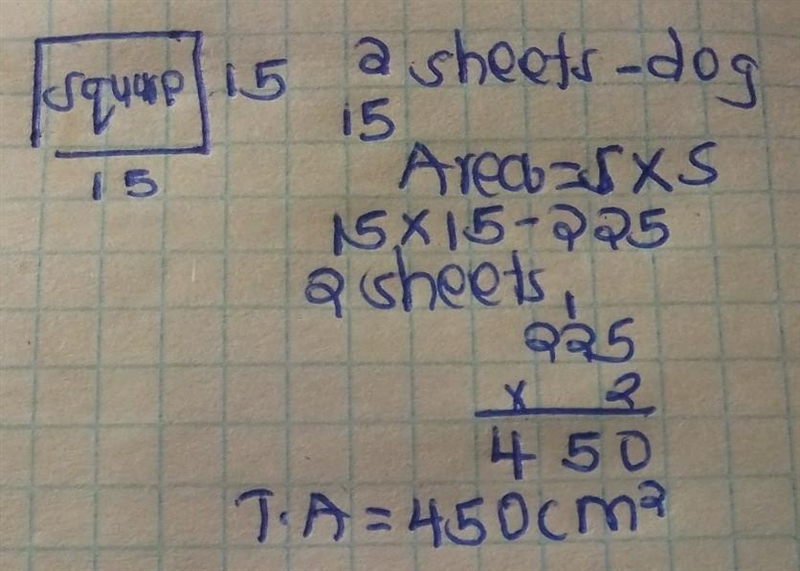 square 15
15
2 sheets - dog
15
Area = S x S
15 x 15 - 225
2 sheets
1
225
x 2
450
T.A = 450cm²